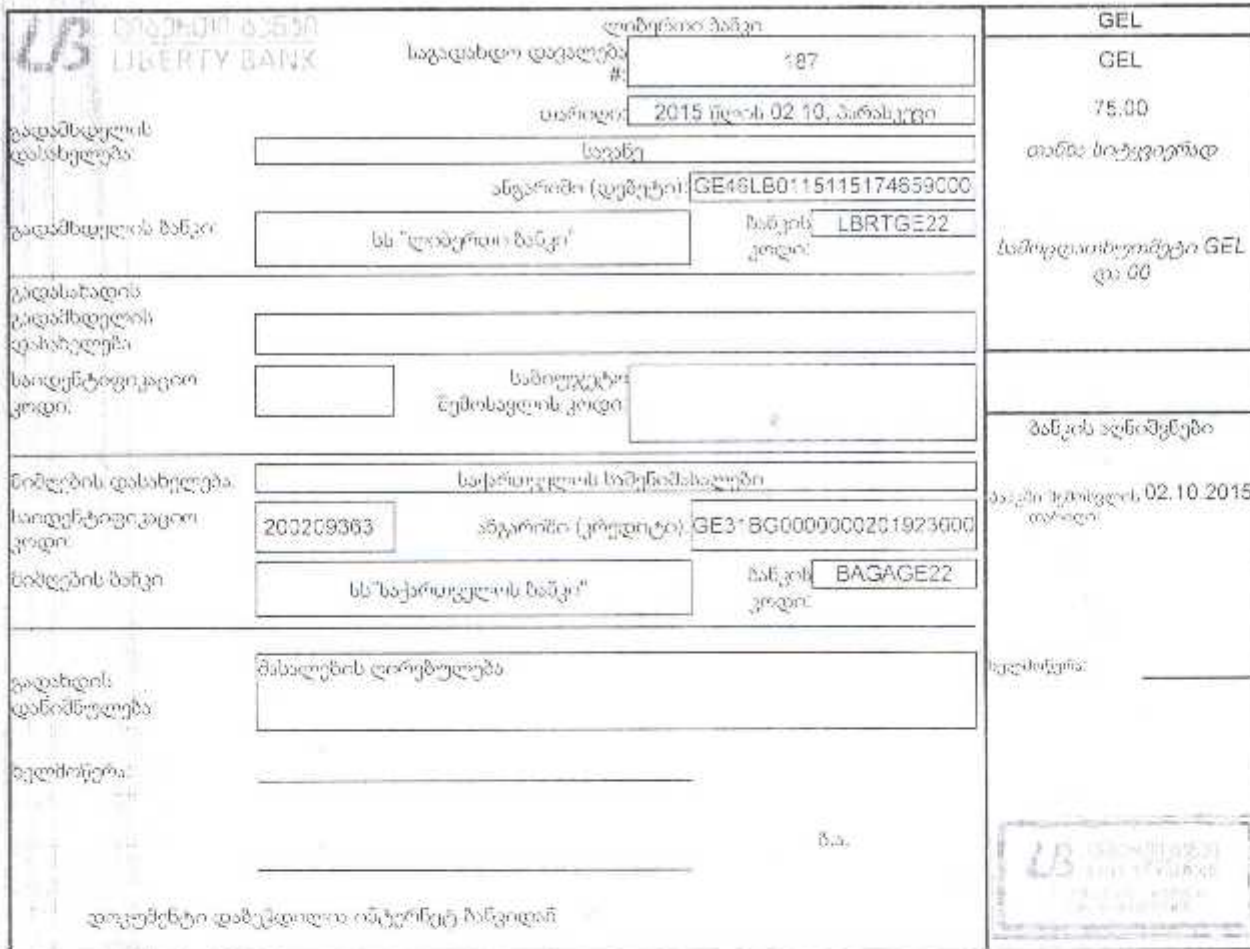 ლიბერთი ბანკი
LIBERTY BANK
ლიბერთი ბანკი
საგადახდო დავალება #: 187
თარიღი: 2015 წლის 02 10, პარასკევი
გადამხდელის დასახელება: სავანე
ანგარიში (დებეტი): GE46LB0115115174659000
გადამხდელის ბანკი: სს "ლიბერთი ბანკი"
ბანკის კოდი: LBRTGE22
გადასახადის გადამხდელის დასახელება
საიდენტიფიკაციო კოდი:
საბიუჯეტო შემოსავლის კოდი
მიმღების დასახელება: საქართველოს სამენიმასალები
საიდენტიფიკაციო კოდი: 200209363
ანგარიში (კრედიტი) GE31BG0000000201923600
მიმღების ბანკი სს"საქართველოს ბანკი"
ბანკის კოდი: BAGAGE22
გადახდის დანიშნულება მასალების ღირებულება
ხელმოწერა:
ბ.ა.
დოკუმენტი დაბეჭდილია ინტერნეტ ბანკიდან
GEL
GEL
75.00
თანხა სიტყვიერად
სამოცდათხუთმეტი GEL
და 00
ბანკის აღნიშვნები
ბანკში შემოსვლის თარიღი: 02.10.2015
ხელმოწერა:
LB